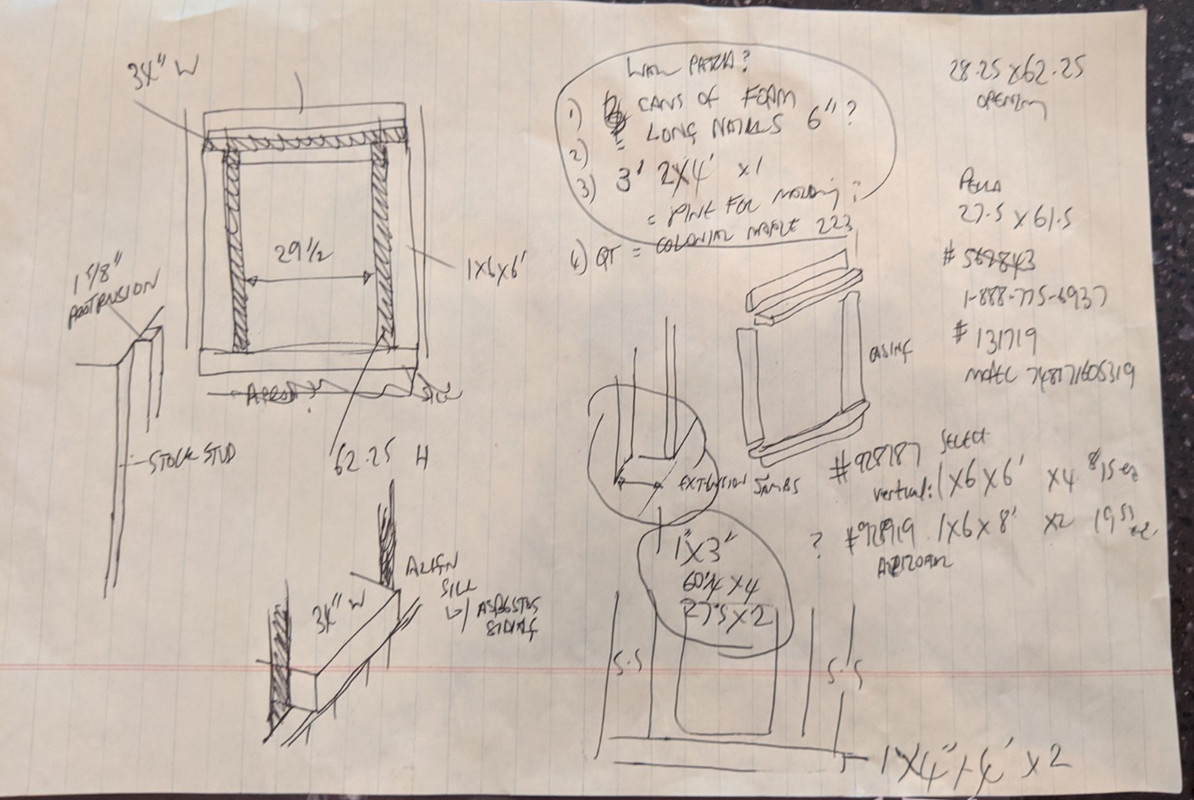 34" W
29 1/2
1X6X6'
1 5/8"
PROTRUSION
STOCK STUD
APRON
SILL
62.25 H
34" W
ALIGN
SILL
W/ ASBESTOS
SIDING
WALL PATCH?
1) CANS OF FOAM
2) LONG NAILS 6"?
3) 3' 2X4' X1
= PINE FOR MOLDING?
4) QT = COLONIAL 223
28.25 X 62.25
OPENING
PELLA
27.5 X 61.5
# 569843
1-888-775-6937
# 131719
748171605319
CASING
EXTENSION JAMBS
#928787 SELECT
vertical: 1X6X6' X4
? #928919 1X6X8' X2
1"X3"
60 1/4 X4
27.5 X2
S.S
S.S
1X4"X4' X2